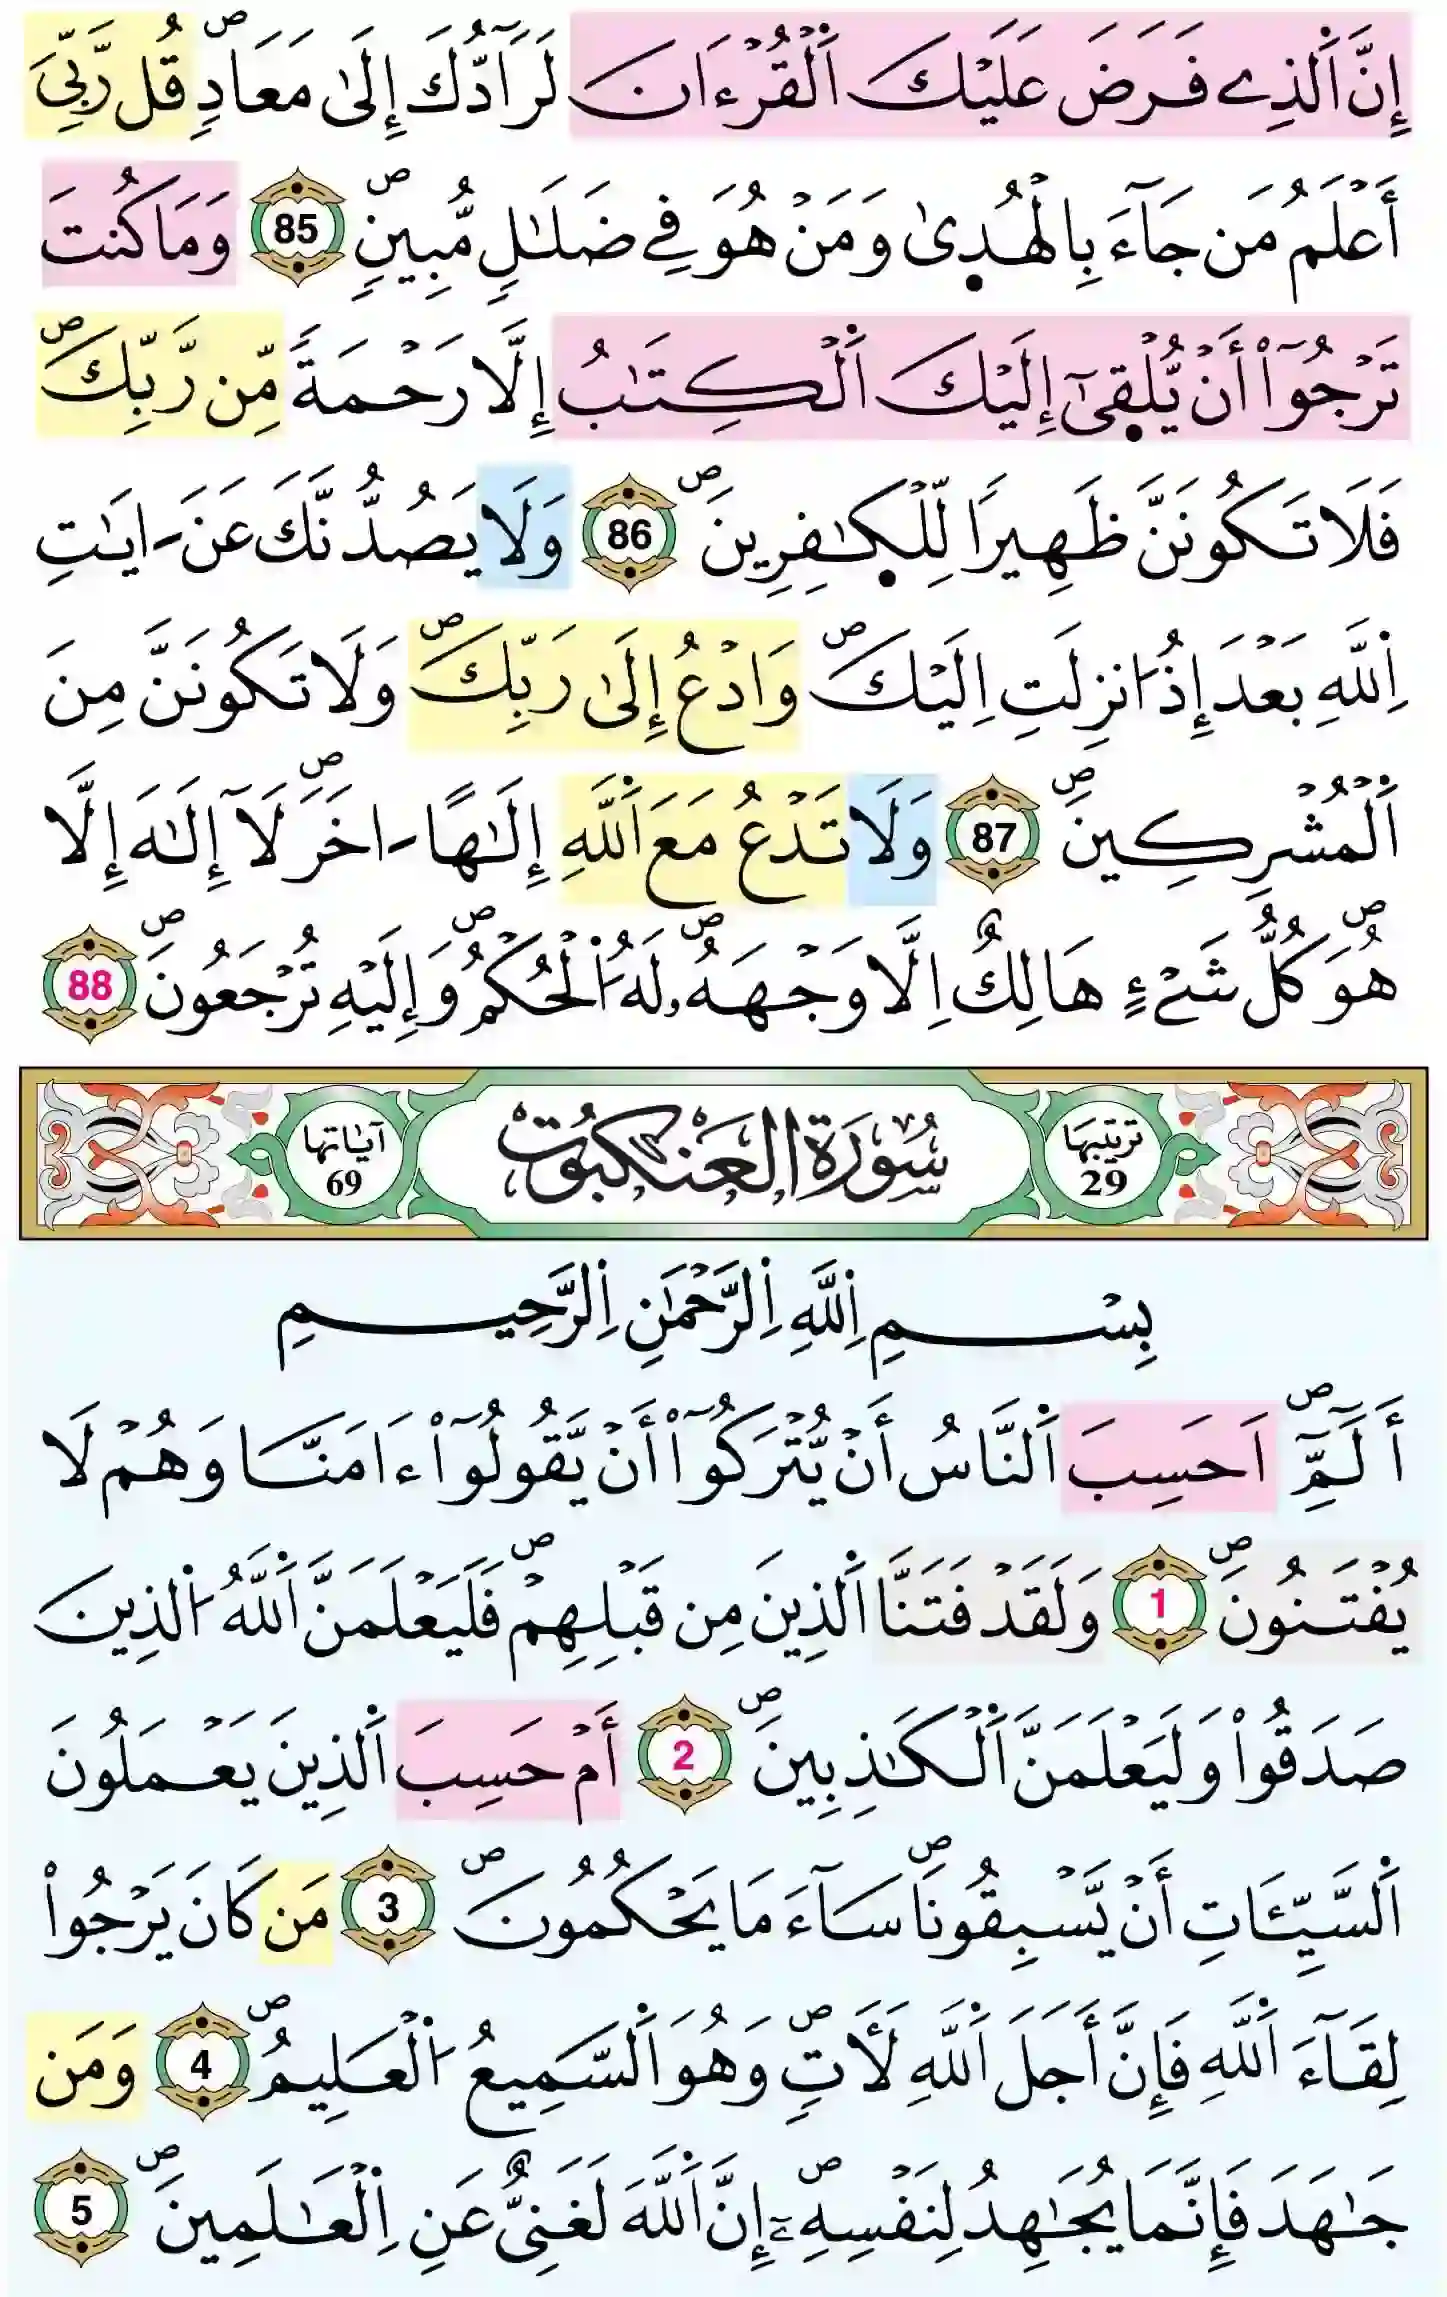 إِنَّ اَ۬لذِے فَرَضَ عَلَيْكَ اَ۬لْقُرْءَانَ لَرَآدُّكَ إِلَىٰ مَعَادٖۖ قُل رَّبِّيَ
أَعْلَمُ مَن جَآءَ بِالْهُد۪ىٰ وَمَنْ هُوَ فِے ضَلَٰلٖ مُّبِينٖۖ 85 وَمَا كُنتَ
تَرْجُوٓاْ أَنْ يُّلْق۪ىٰٓ إِلَيْكَ اَ۬لْكِتَٰبُ إِلَّا رَحْمَةٗ مِّن رَّبِّكَۖ
فَلَا تَكُونَنَّ ظَهِيراٗ لِّلْكٰ۪فِرِينَۖ 86 وَلَا يَصُدُّنَّكَ عَنَ اٰيَٰتِ
اِ۬للَّهِ بَعْدَ إِذُ ا۟نزِلَتِ اِلَيْكَۖ وَادْعُ إِلَىٰ رَبِّكَۖ وَلَا تَكُونَنَّ مِنَ
اَ۬لْمُشْرِكِينَۖ 87 وَلَا تَدْعُ مَعَ اَ۬للَّهِ إِلَٰهاً اٰخَرَۖ لَآ إِلَٰهَ إِلَّا
هُوَۖ كُلُّ شَےْءٍ هَالِكٌ اِلَّا وَجْهَهُۥۖ لَهُ اُ۬لْحُكْمُۖ وَإِلَيْهِ تُرْجَعُونَۖ 88
سُورَةُ الْعَنكَبُوتِ
ترتيبها 29
آياتها 69
بِسْمِ اِ۬للَّهِ اِ۬لرَّحْمَٰنِ اِ۬لرَّحِيمِ
أَلَٓمِّٓۖ اَحَسِبَ اَ۬لنَّاسُ أَنْ يُّتْرَكُوٓاْ أَنْ يَّقُولُوٓاْ ءَامَنَّا وَهُمْ لَا
يُفْتَنُونَۖ 1 وَلَقَدْ فَتَنَّا اَ۬لذِينَ مِن قَبْلِهِمْۖ فَلَيَعْلَمَنَّ اَ۬للَّهُ اُ۬لذِينَ
صَدَقُواْ وَلَيَعْلَمَنَّ اَ۬لْكَٰذِبِينَۖ 2 أَمْ حَسِبَ اَ۬لذِينَ يَعْمَلُونَ
اَ۬لسَّيِّـَٔاتِ أَنْ يَّسْبِقُونَاۖ سَآءَ مَا يَحْكُمُونَۖ 3 مَن كَانَ يَرْجُواْ
لِقَآءَ اَ۬للَّهِ فَإِنَّ أَجَلَ اَ۬للَّهِ لَأٓتٖۖ وَهُوَ اَ۬لسَّمِيعُ اُ۬لْعَلِيمُۖ 4 وَمَن
جَٰهَدَ فَإِنَّمَا يُجَٰهِدُ لِنَفْسِهِۦٓۖ إِنَّ اَ۬للَّهَ لَغَنِيٌّ عَنِ اِ۬لْعَٰلَمِينَۖ 5